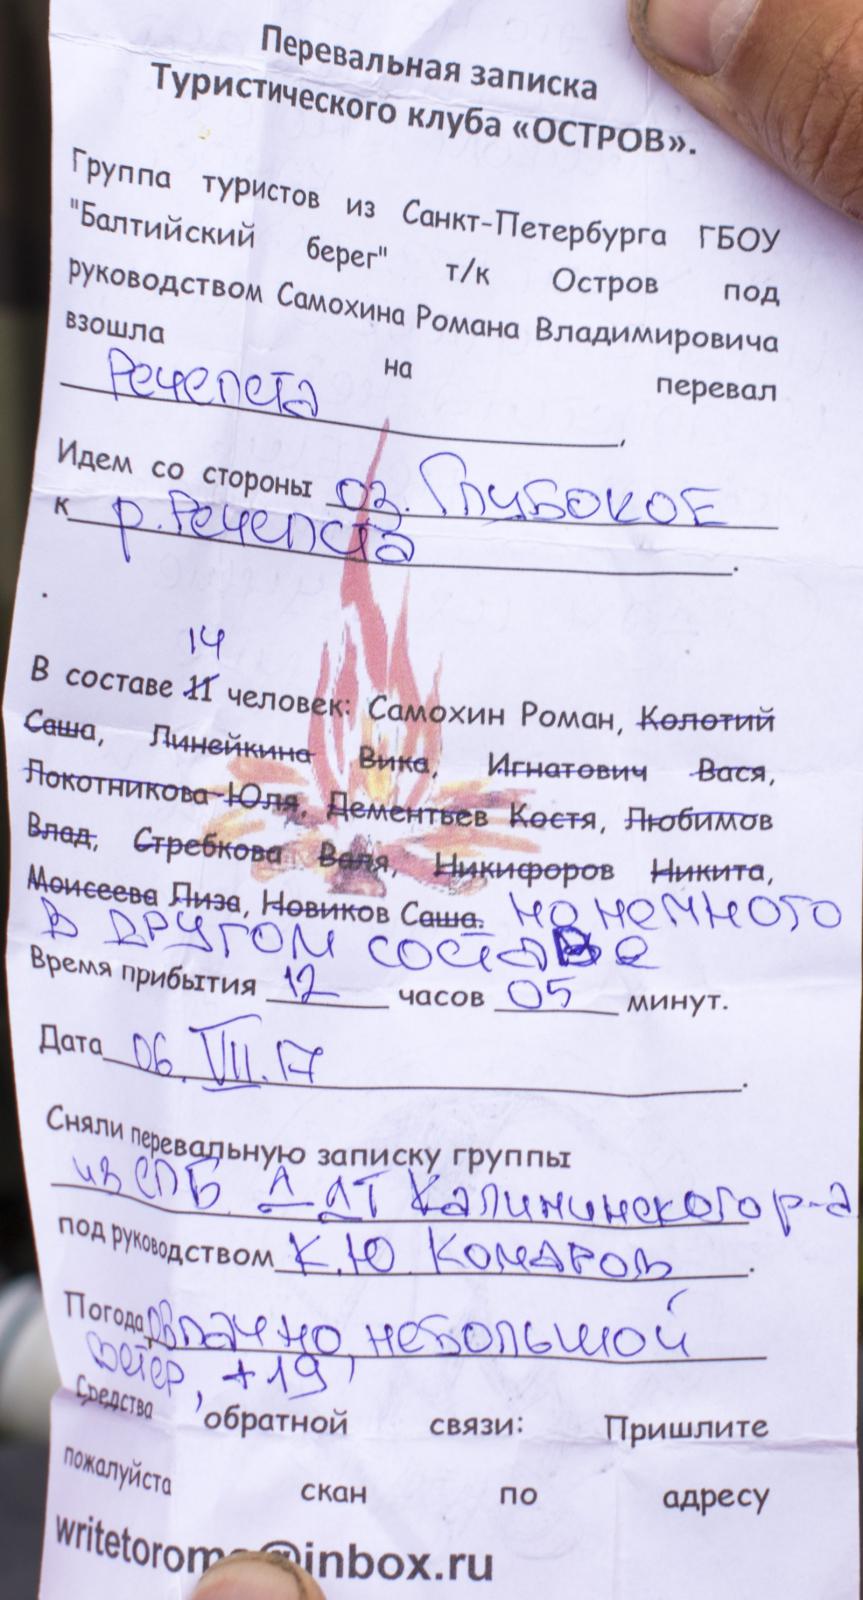 Перевальная записка
Туристического клуба «ОСТРОВ».
Группа туристов из Санкт-Петербурга ГБОУ
"Балтийский берег" т/к Остров под
руководством Самохина Романа Владимировича
взошла на перевал
Речепста,
Идем со стороны оз. Глубокое
к р. Речепста.
14
В составе 11 человек: Самохин Роман, Колотий
Саша, Линейкина Вика, Игнатович Вася,
Локотникова Юля, Дементьев Костя, Любимов
Влад, Стребкова Валя, Никифоров Никита,
Моисеева Лиза, Новиков Саша. но немного
в другом составе
Время прибытия 12 часов 05 минут.
Дата 06.VII.17.
Сняли перевальную записку группы
из СПБ ДДТ Калининского р-а
под руководством К.Ю Комаров.
Погода облачно, небольшой
ветер, +19
Средства обратной связи: Пришлите
пожалуйста скан по адресу
@inbox.ru